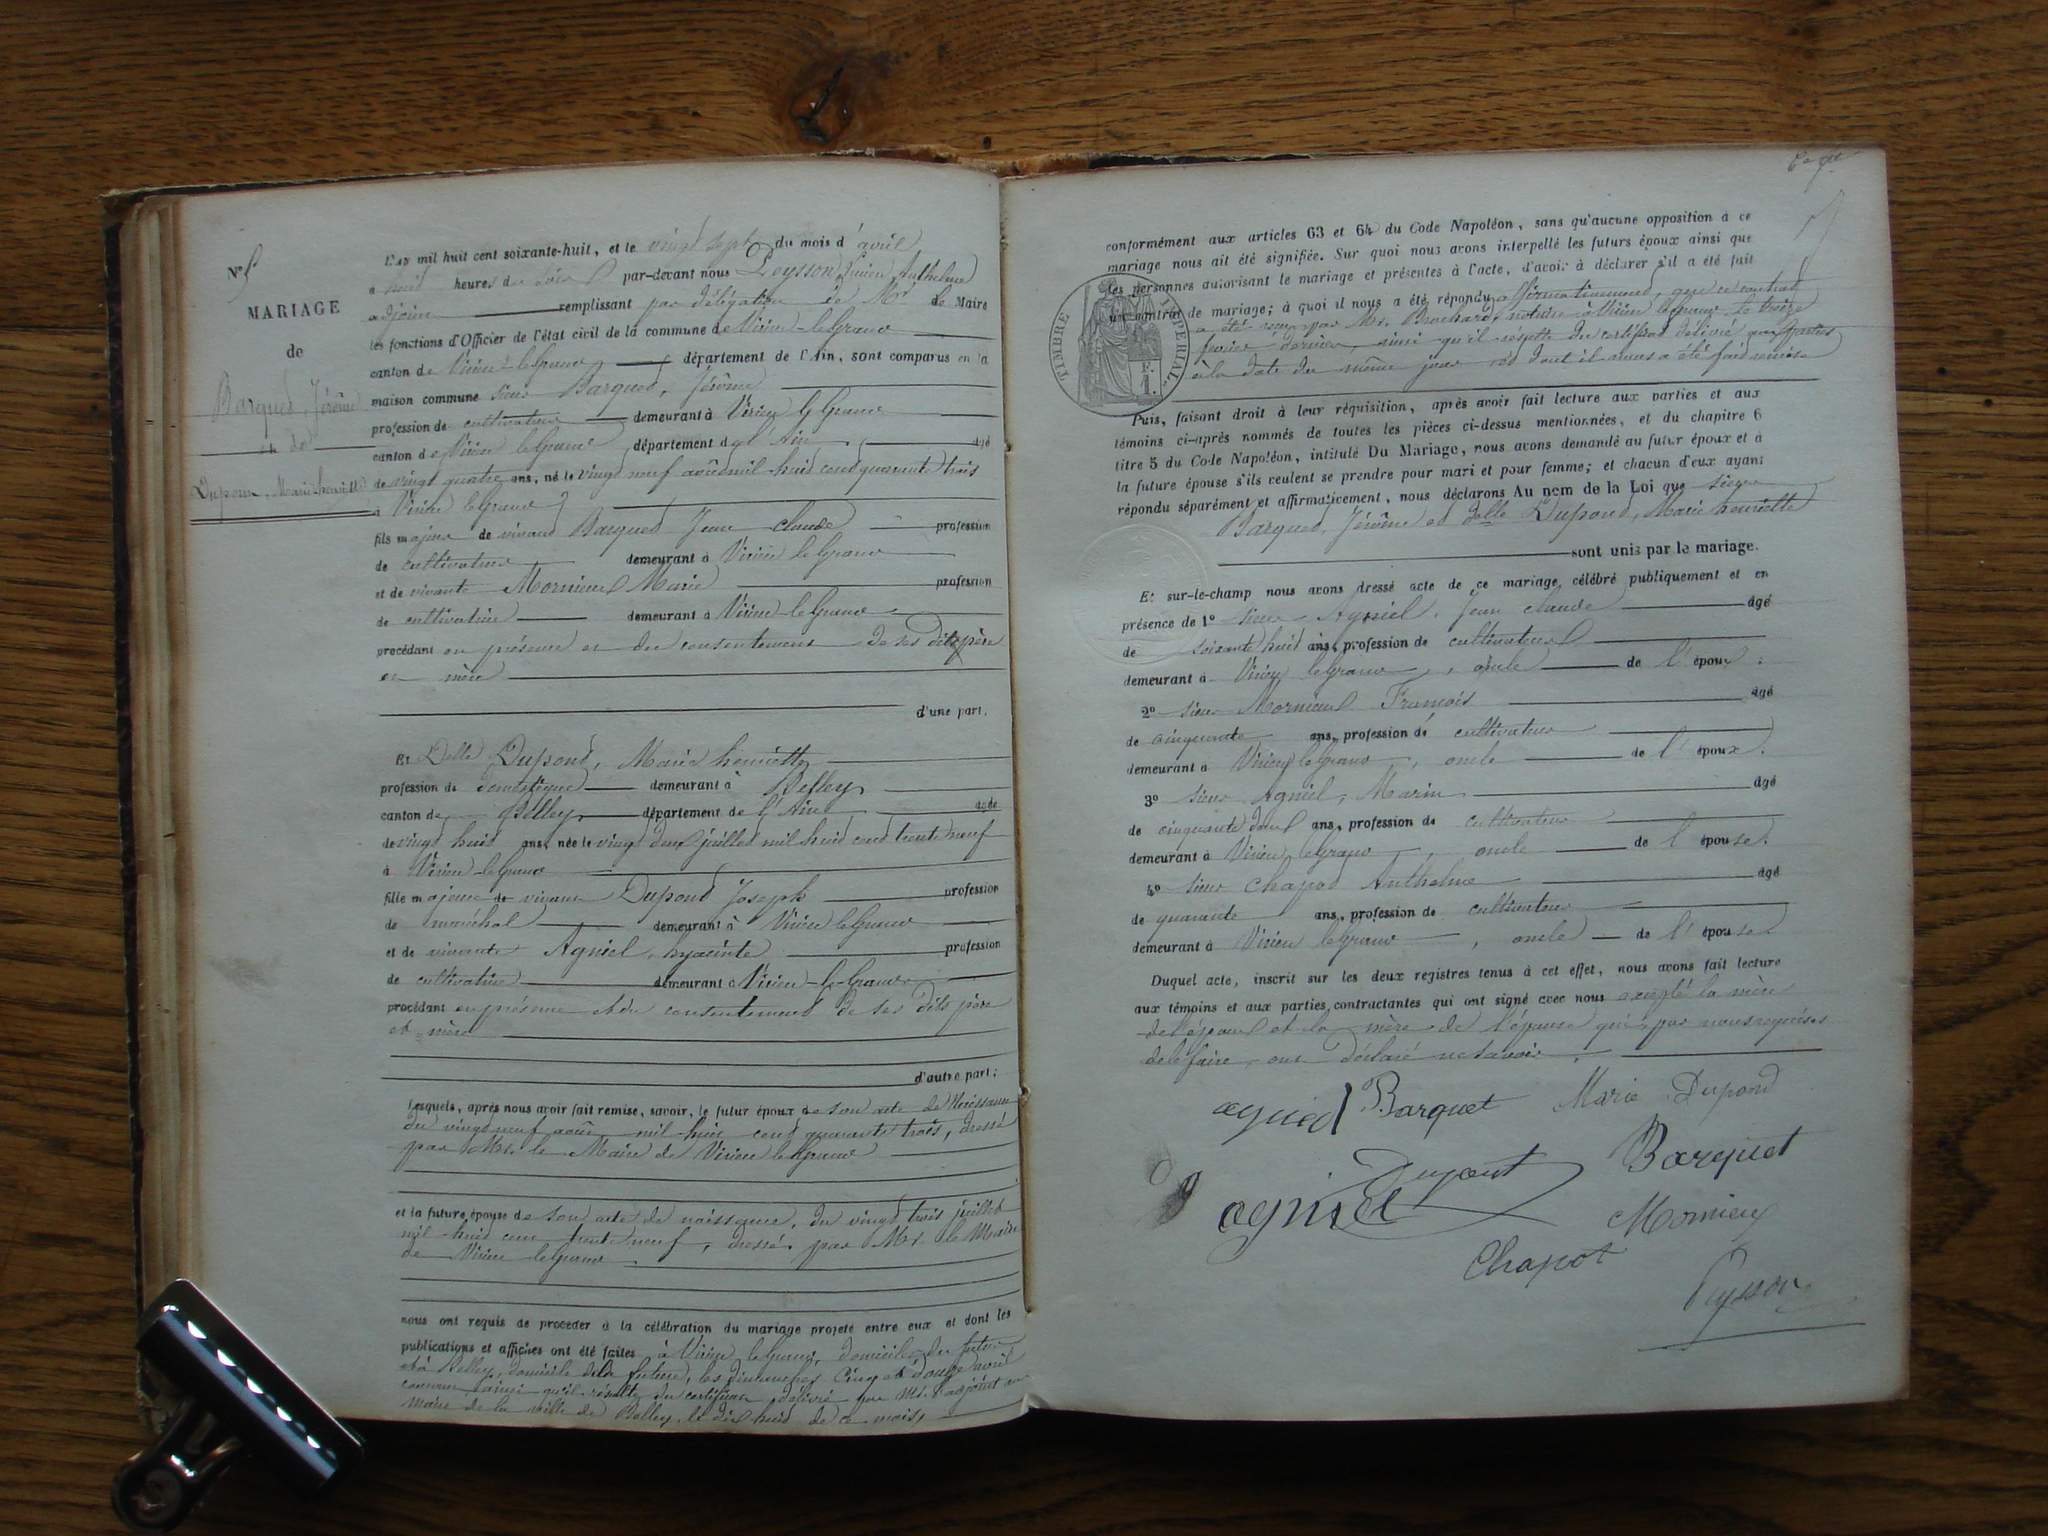 N° 5
MARIAGE
de
Barquet, Jérôme
et de
Dupond, Marie henriette
L'an mil huit cent soixante-huit, et le vingt sept du mois d'avril
à huit heures du soir par-devant nous Peysson, Anthelme
adjoint remplissant par délégation de Mr le Maire
les fonctions d'Officier de l'état civil de la commune de Virieu-le-Grand
canton de Virieu-le-Grand département de l'Ain, sont comparus en la
maison commune sieur Barquet, Jérôme
profession de cultivateur demeurant à Virieu le Grand
canton de Virieu le Grand département de l'Ain âgé
de vingt quatre ans, né le vingt neuf août mil huit cent quarante trois
à Virieu le Grand
fils majeur de vivant Barquet Jean claude profession
de cultivateur demeurant à Virieu le Grand
et de vivante Mornieux Marie profession
de cultivatrice demeurant à Virieu-le-Grand
procédant en présence et du consentement de ses dits père
et mère
d'une part.
Et Delle Dupond, Marie henriette
profession de domestique demeurant à Belley
canton de Belley département de l'Ain âgée
de vingt huit ans, née le vingt deux juillet mil huit cent trente neuf
à Virieu-le-Grand
fille majeure de vivant Dupond Joseph profession
de maréchal demeurant à Virieu le Grand
et de vivante Agniel, hyacinte profession
de cultivatrice demeurant à Virieu-le-Grand
procédant en présence et du consentement de ses dits père
et mère
d'autre part;
Lesquels, après nous avoir fait remise, savoir, le futur époux de son acte de Naissance
du vingt neuf août mil huit cent quarante trois, dressé
par Mr. le Maire de Virieu le Grand
et la future épouse de son acte de naissance, du vingt trois juillet
mil huit cent trente neuf, dressé par Mr. le Maire
de Virieu le Grand
nous ont requis de procéder à la célébration du mariage projeté entre eux et dont les
publications et affiches ont été faites à Virieu le Grand, domicile du futur
et à Belley, domicile de la future, les dimanches cinq et douze avril
courant, ainsi qu'il résulte du certificat délivré par Mr. l'adjoint au
maire de la ville de Belley le dix huit de ce mois,
conformément aux articles 63 et 64 du Code Napoléon, sans qu'aucune opposition à ce
mariage nous ait été signifiée. Sur quoi nous avons interpellé les futurs époux ainsi que
les personnes autorisant le mariage et présentes à l'acte, d'avoir à déclarer s'il a été fait
un contrat de mariage; à quoi il nous a été répondu affirmativement, que ce contrat
a été reçu par Mr. Brochard, notaire à Virieu le Grand le treize
février dernier, ainsi qu'il résulte du certificat délivré
à la date du même jour et dont il nous a été fait remise
TIMBRE IMPERIAL
1 F.
Puis, faisant droit à leur réquisition, après avoir fait lecture aux parties et aux
témoins ci-après nommés de toutes les pièces ci-dessus mentionnées, et du chapitre 6
titre 5 du Code Napoléon, intitulé Du Mariage, nous avons demandé au futur époux et à
la future épouse s'ils veulent se prendre pour mari et pour femme; et chacun d'eux ayant
répondu séparément et affirmativement, nous déclarons Au nom de la Loi que sieur
Barquet, Jérôme et delle Dupond, Marie henriette
sont unis par le mariage.
Et sur-le-champ nous avons dressé acte de ce mariage, célébré publiquement et en
présence de 1° sieur Agniel, Jean claude âgé
de soixante huit ans, profession de cultivateur
demeurant à Virieu le Grand, oncle de l'époux;
2° sieur Mornieux François âgé
de cinquante ans, profession de cultivateur
demeurant à Virieu le Grand, oncle de l'époux.
3° sieur Agniel, Marin âgé
de cinquante deux ans, profession de cultivateur
demeurant à Virieu le Grand, oncle de l'épouse.
4° sieur Chapot Anthelme âgé
de quarante ans, profession de cultivateur
demeurant à Virieu le Grand, oncle de l'épouse
Duquel acte, inscrit sur les deux registres tenus à cet effet, nous avons fait lecture
aux témoins et aux parties contractantes qui ont signé avec nous excepté la mère
de l'époux et la mère de l'épouse qui, par nous requises
de le faire, ont déclaré ne savoir.
agniel Barquet Marie Dupond
Dupont Barquet
agniel Mornieux
Chapot
Peysson